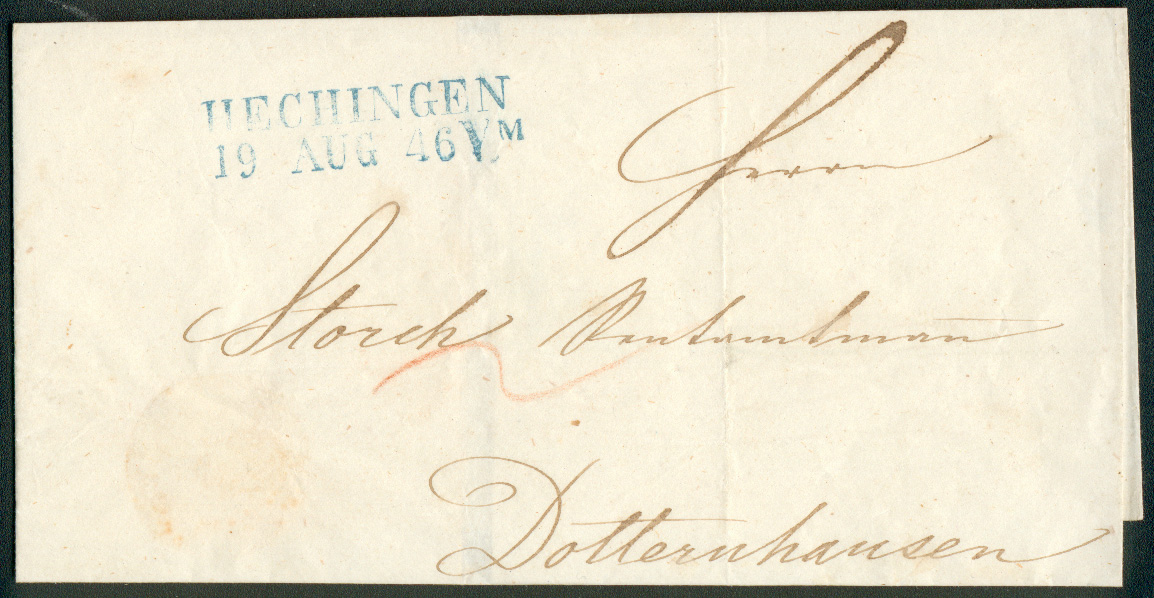 HECHINGEN
19 AUG 46 VM
Herrn
Storch Rentamtman̅
2
Dotternhausen